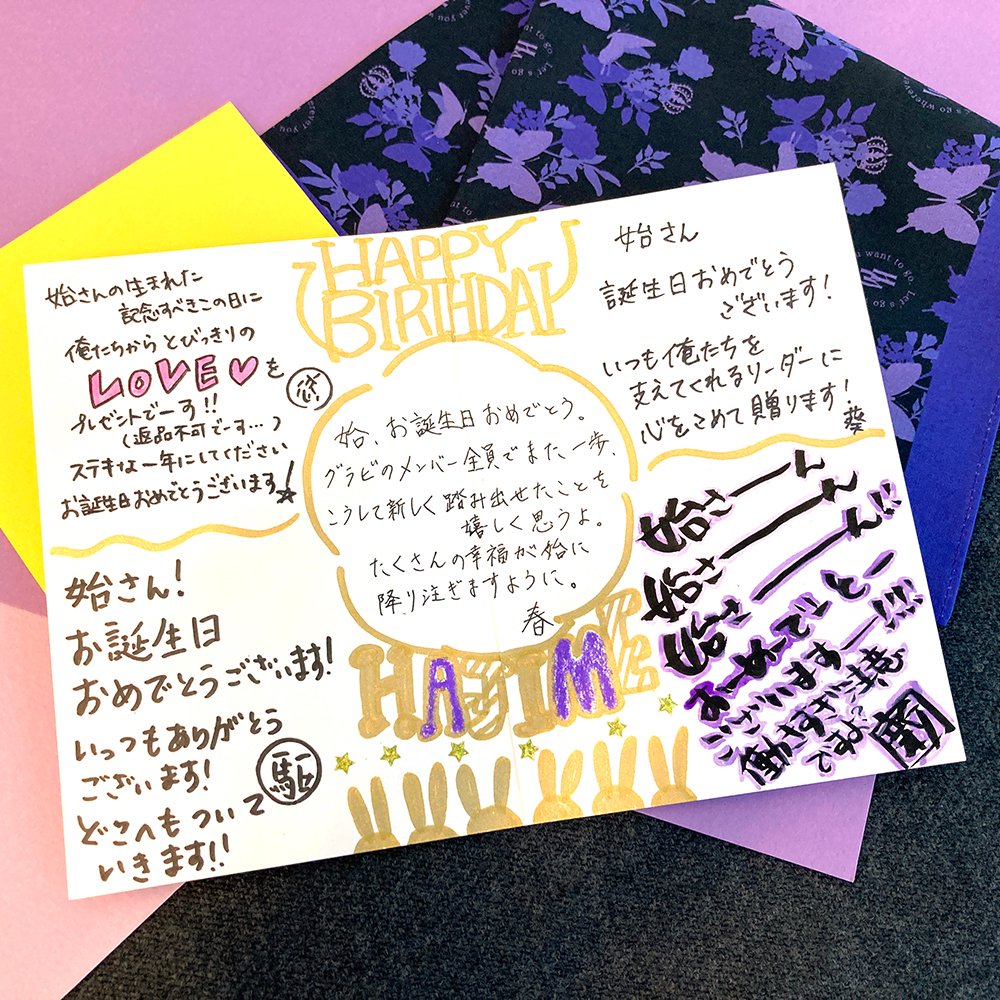 始さんの生まれた
記念すべきこの日に
俺たちからとびっきりの
LOVE♡を
プレゼントでーす!!
(返品不可でーす…)
ステキな一年にしてください
お誕生日おめでとうございます!☆
恋
始さん!
お誕生日
おめでとうございます!
いっつもありがとう
ございます!
どこへもついて
いきます!!
駆
HAPPY
BIRTHDAY
始、お誕生日おめでとう。
グラビのメンバー全員でまた一歩、
こうして新しく踏み出せたことを
嬉しく思うよ。
たくさんの幸福が始に
降り注ぎますように。
春
HAJIME
始さん
誕生日おめでとう
ございます!
いつも俺たちを
支えてくれるリーダーに
心をこめて贈ります!
葵
始さーん
始さーーん
始さーーん!!
おめでとー
ございまーす!!!
働きすぎに注意
ですよ
want to go.
Let's go wherever you
want to go.
Let's go